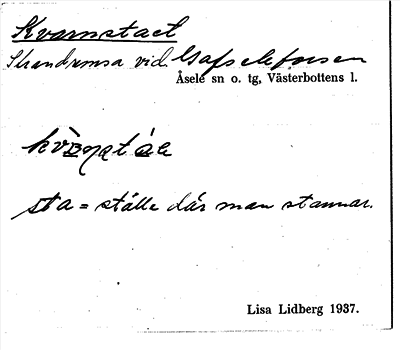 Kvarnstael
Strandremsa vid Gafseleforsen
Åsele sn o. tg, Västerbottens l.
sta = ställe där man stannar.
Lisa Lidberg 1937.